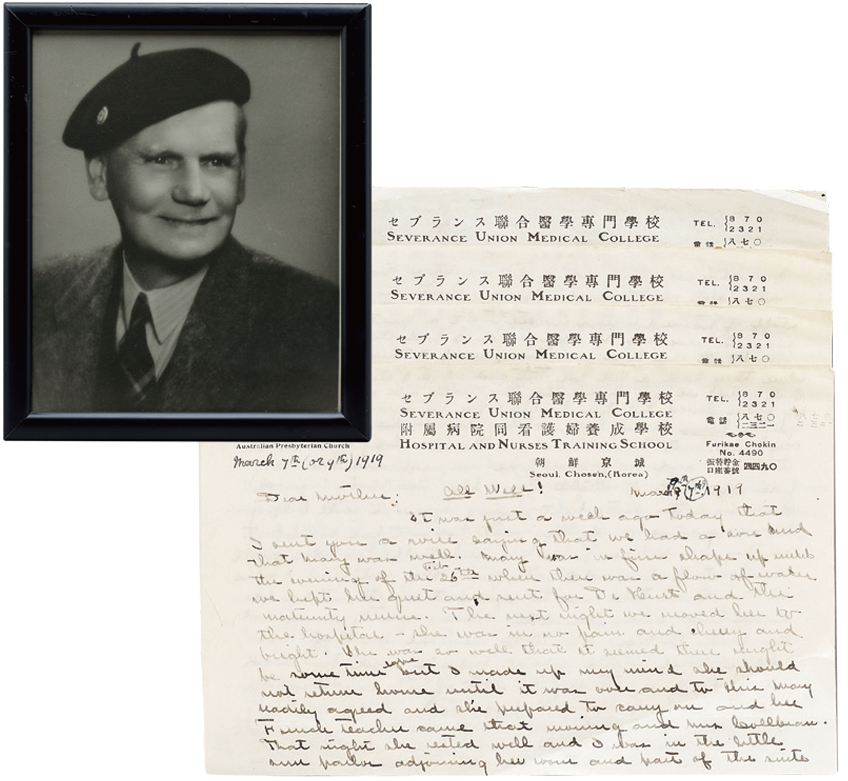 セブランス聯合醫學專門學校
SEVERANCE UNION MEDICAL COLLEGE
TEL. { 8 7 0
2 3 2 1
電話 { 八七〇
セブランス聯合醫學專門學校
SEVERANCE UNION MEDICAL COLLEGE
TEL. { 8 7 0
2 3 2 1
電話 { 八七〇
セブランス聯合醫學專門學校
SEVERANCE UNION MEDICAL COLLEGE
TEL. { 8 7 0
2 3 2 1
電話 { 八七〇
セブランス聯合醫學專門學校
SEVERANCE UNION MEDICAL COLLEGE
附屬病院同看護婦養成學校
HOSPITAL AND NURSES TRAINING SCHOOL
朝鮮京城
Seoul, Chosen, (Korea)
TEL. { 8 7 0
2 3 2 1
電話 { 八七〇
二三二一
Furikae Chokin
No. 4490
振替貯金
口座番號 四四九〇
Australian Presbyterian Church
March 7th (or 9th) 1919
Dear Mother: All Well! March 1919
It was just a week ago today that
I sent you a wire saying that we had a son and
that Mary was well. Mary was in fine shape up until
the evening of the Feb 26th when there was a flow of water
we kept her quiet and sent for Dr and the
maternity nurse. The next night we moved her to
the hospital - she was in no pain and cheery and
bright. She was so well that it seemed there might
be some time but I made up my mind she should
not return home until it was over and to this Mary
readily agreed and she prepared to carry on and her
French teacher came that morning and Mrs Collbran.
That night she rested well and I was in the little
sun parlor adjoining her room and part of the suite